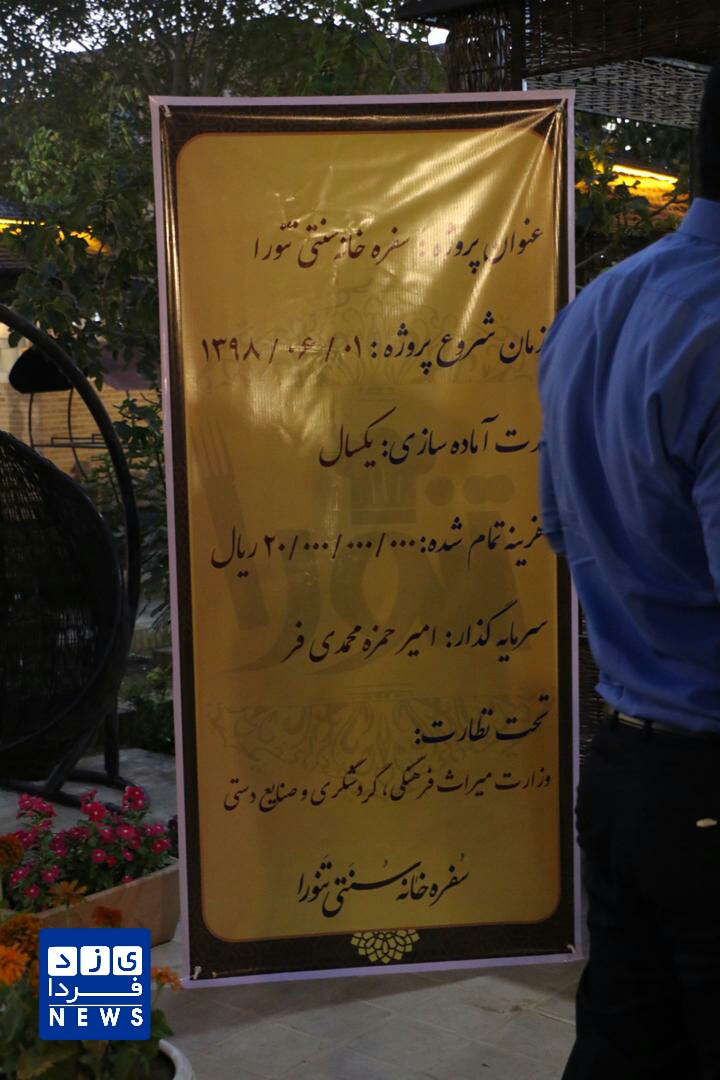 عنوان پروژه : سفره خانه سنتی تنّورا
زمان شروع پروژه : ۱۳۹۸/۰۶/۰۱
مدت آماده سازی: یکسال
هزینه تمام شده: ۲۰/۰۰۰/۰۰۰/۰۰۰ ریال
سرمایه گذار: امیر حمزه محمدی فر
تحت نظارت:
وزارت میراث فرهنگی، گردشگری و صنایع دستی
سُفره خانه سُنتی تَنورا
تنورا
یزد
فردا
NEWS